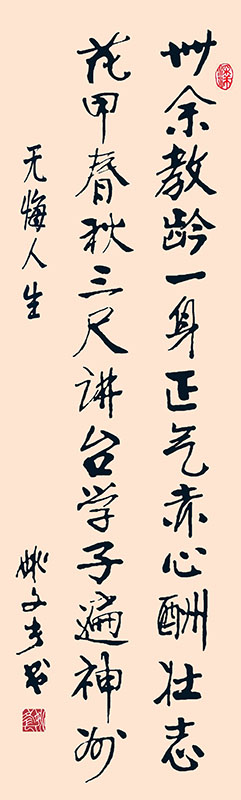 卅余教龄一身正气赤心酬壮志
花甲春秋三尺讲台学子遍神州
无悔人生
姚文书